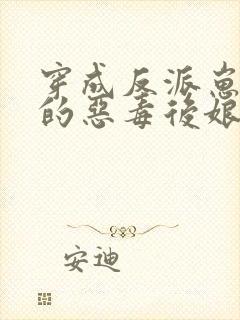 穿成反派崽崽
的惡毒後娘
安迪